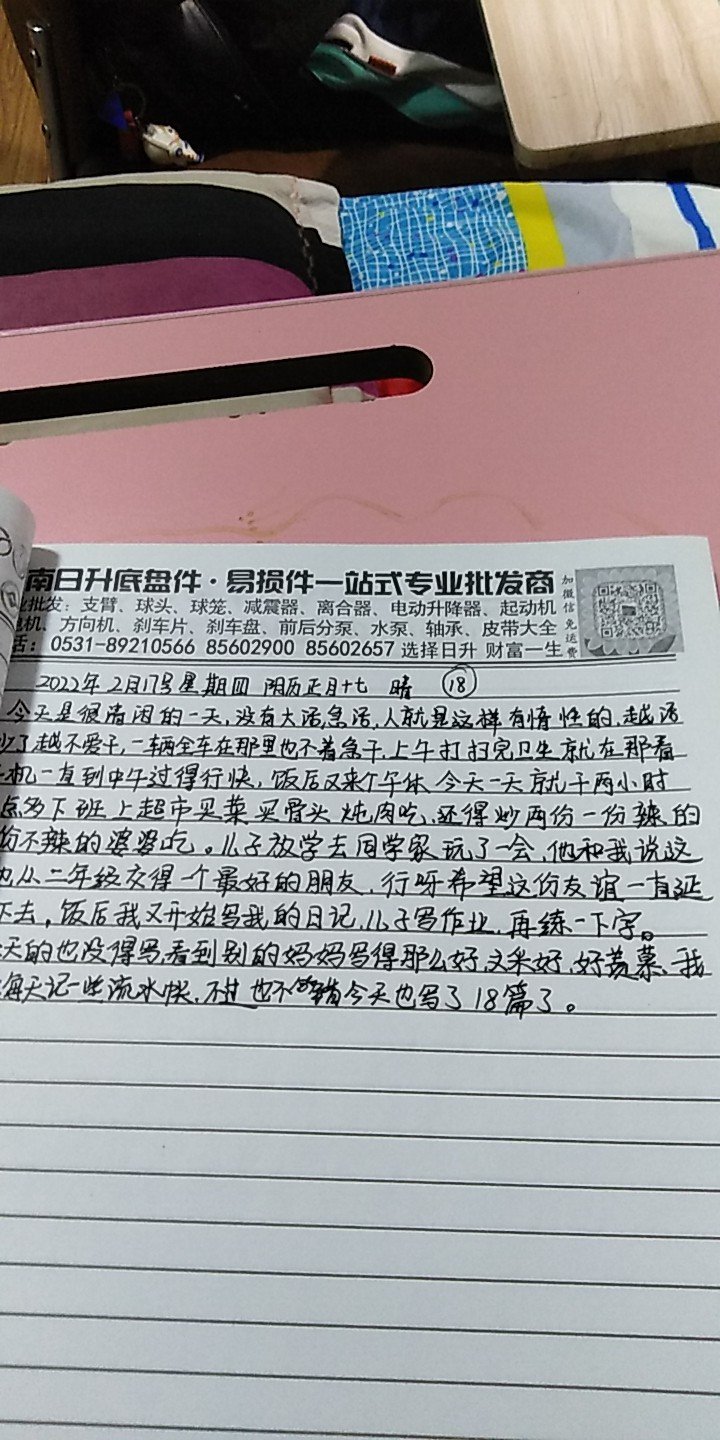 南日升底盘件·易损件一站式专业批发商
业批发：支臂、球头、球笼、减震器、离合器、电动升降器、起动机
电机、方向机、刹车片、刹车盘、前后分泵、水泵、轴承、皮带大全
话：0531-89210566 85602900 85602657 选择日升 财富一生
加微信免运费
2022年2月17号星期四 阴历正月十七 晴 18
今天是很清闲的一天，没有大活，急活，人就是这样有惰性的，越活
少了越不爱干，一辆全车在那里也不着急干，上午打扫完卫生就在那看
手机一直到中午过得行快，饭后又来个午休，今天一天就干两小时
点多下班上超市买菜买骨头炖肉吃，还得炒两份一份辣的
份不辣的婆婆吃。儿子放学去同学家玩了一会，他和我说这
也从二年级交得一个最好的朋友，行呀希望这份友谊一直延
下去，饭后我又开始写我的日记，儿子写作业，再练一下字。
天的也没得写，看到别的妈妈写得那么好，文采好，好羡慕、我
每天记一些流水帐，不过也不错今天也写了18篇了。